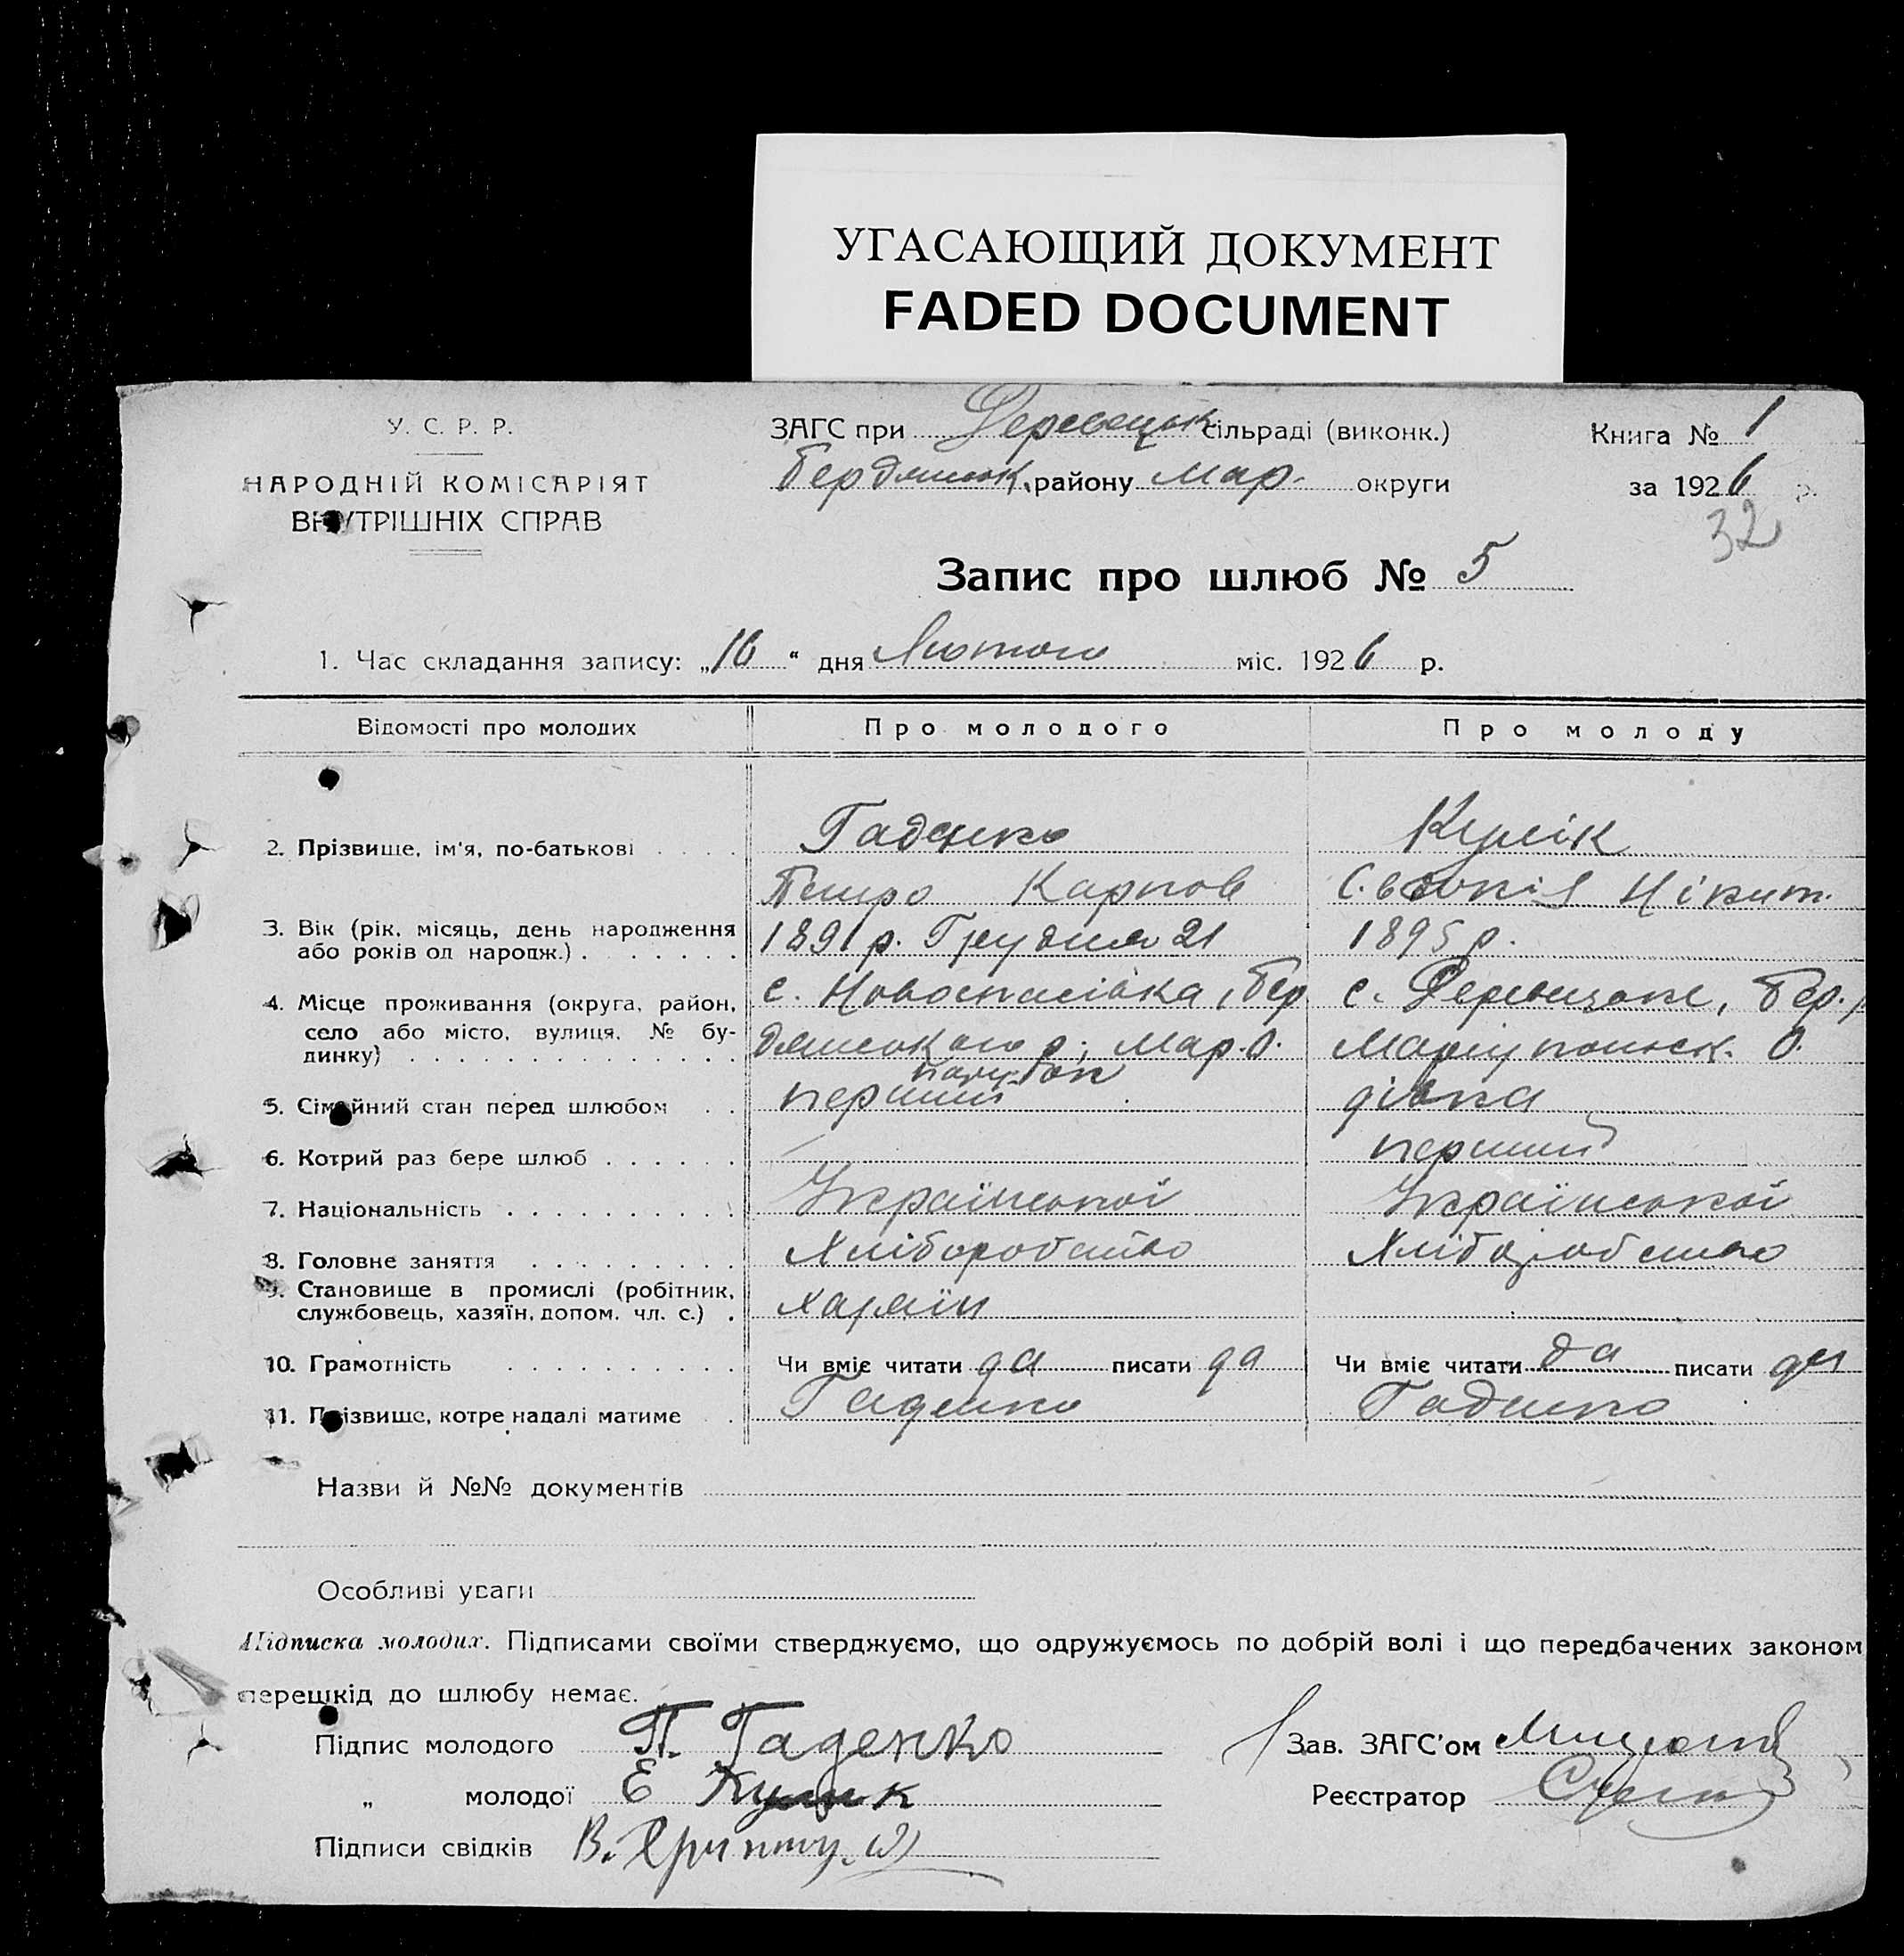 УГАСАЮЩИЙ ДОКУМЕНТ
FADED DOCUMENT
У. С. Р. Р.
НАРОДНІЙ КОМІСАРІЯТ
ВНУТРІШНІХ СПРАВ
ЗАГС при Деревецьк сільраді (виконк.)
Бердянськ. району Мар. округи
Книга № 1
за 1926 р.
32
Запис про шлюб № 5
1. Час складання запису: „16“ дня Лютого міс. 1926 р.
Відомості про молодих Про молодого Про молоду
2. Прізвище, ім'я, по-батькові Гаденко Кулік
Петро Карпов Нікит.
3. Вік (рік, місяць, день народження 1891 р. Грудня 21 1895 р.
або років од народж.)
4. Місце проживання (округа, район, с. Новоспасівка, Бер с. Деревецьке, Бер. р
село або місто, вулиця, № бу- дянського р; Мар. О. Маріупольск. О.
динку)
парубок
5. Сімейний стан перед шлюбом перший дівка
6. Котрий раз бере шлюб перший
7. Національність Української Української
8. Головне заняття Хліборобство Хліборобство
9. Становище в промислі (робітник,
службовець, хазяїн, допом. чл. с.) Хазяїн
10. Грамотність Чи вміє читати да писати да Чи вміє читати да писати да
11. Прізвище, котре надалі матиме Гаденко Гаденко
Назви й №№ документів
Особливі уваги
Підписка молодих. Підписами своїми стверджуємо, що одружуємось по добрій волі і що передбачених законом
перешкід до шлюбу немає.
Підпис молодого П. Гаденко
Зав. ЗАГС'ом
„ молодої Е Кулик
Реєстратор
Підписи свідків В.